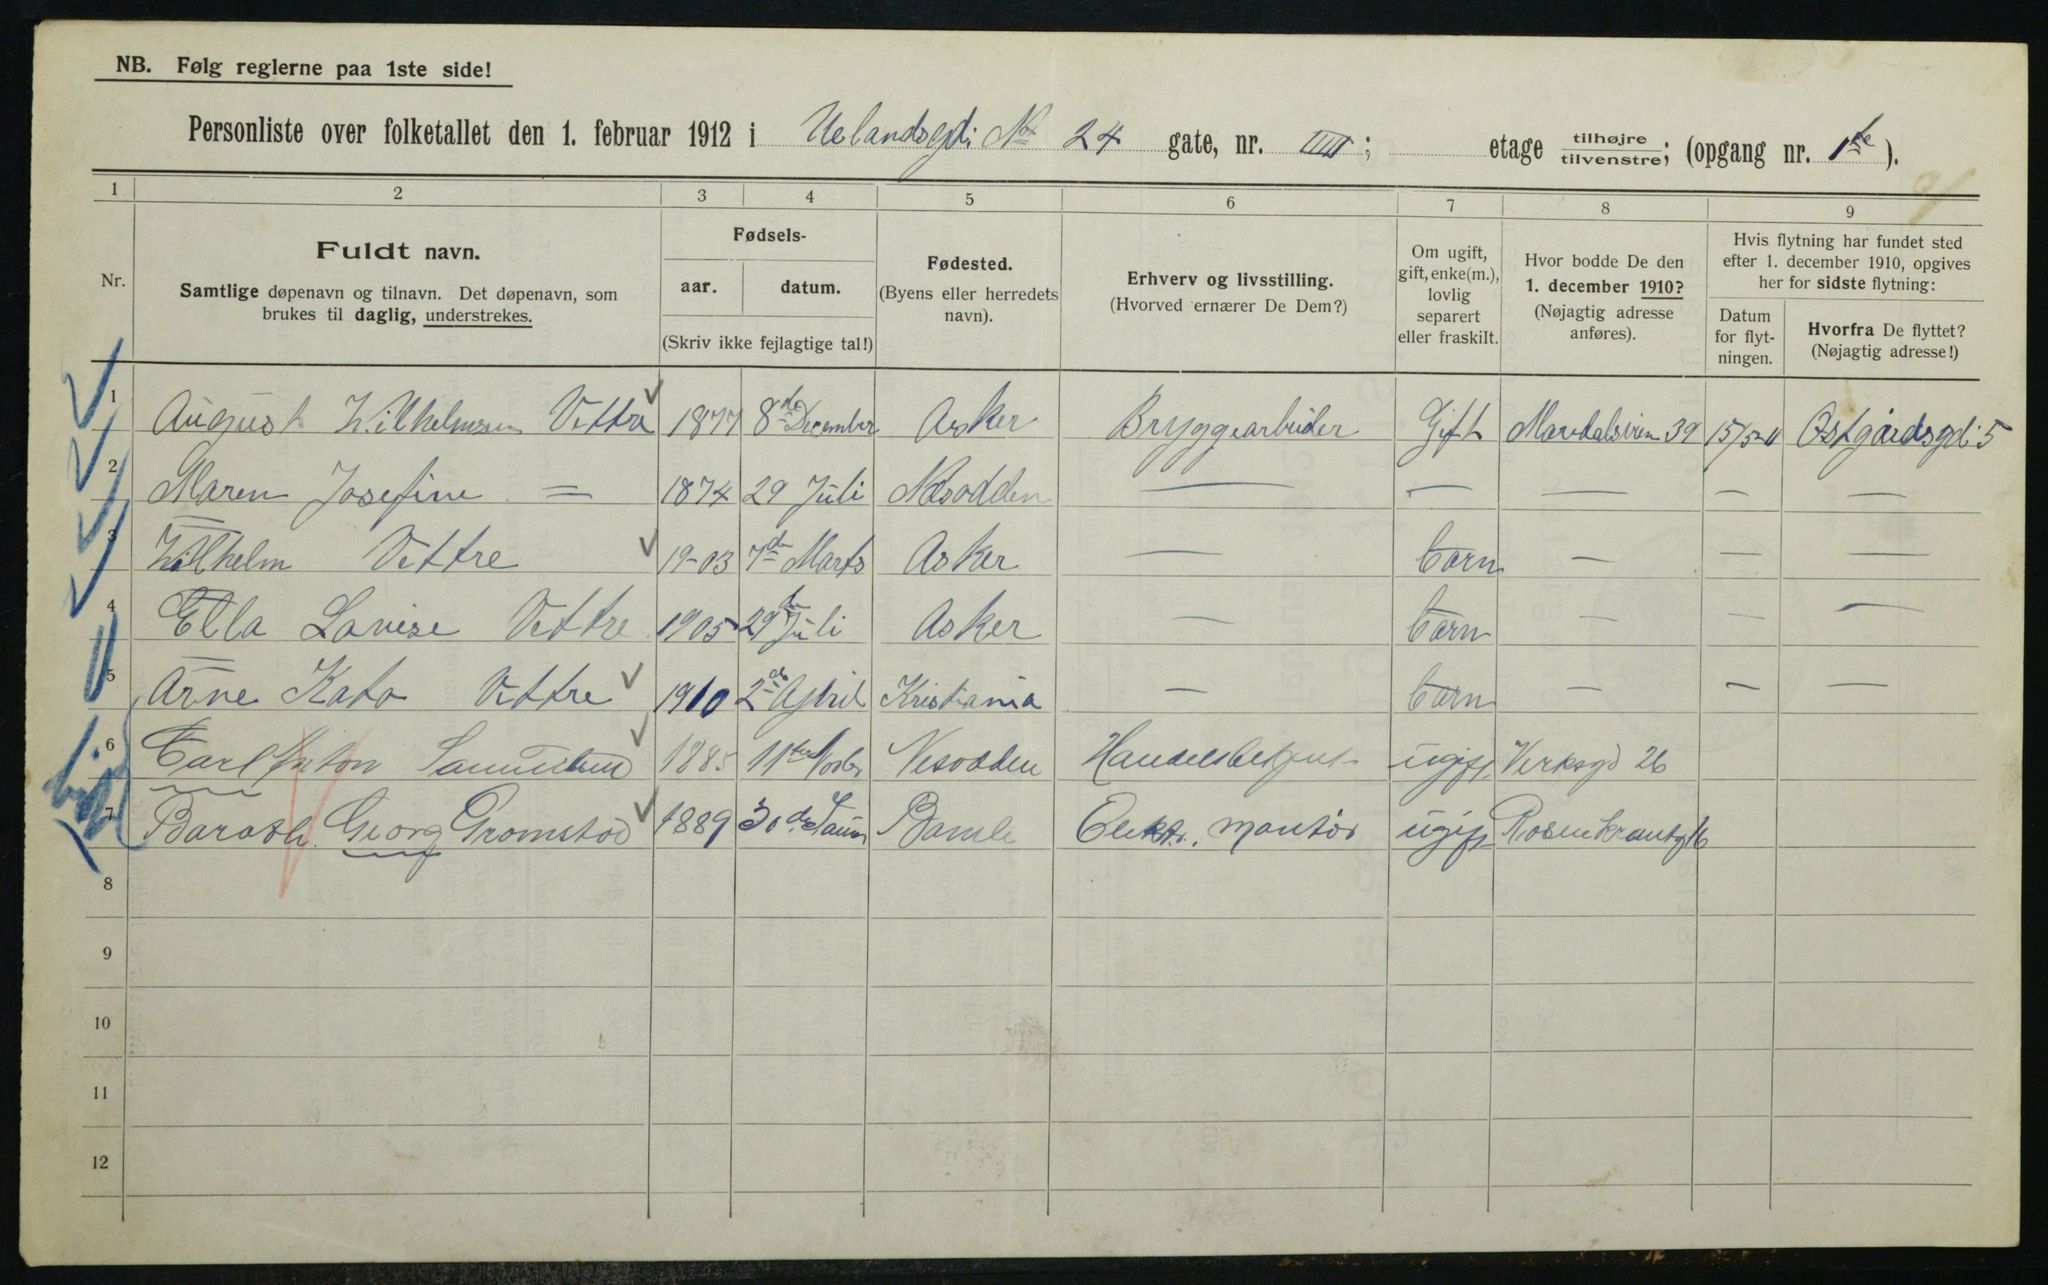 NB. Følg reglerne paa 1ste side!
Personliste over folketallet den 1. februar 1912 i Uelandsgd: No 24 gate, nr. IIII; etage tilhøjre / tilvenstre; (opgang nr. 1ste).
1 2 3 4 5 6 7 8 9
Nr.
Fuldt navn.
Samtlige døpenavn og tilnavn. Det døpenavn, som
brukes til daglig, understrekes.
Fødsels-
aar. datum.
(Skriv ikke fejlagtige tal!)
Fødested.
(Byens eller herredets
navn).
Erhverv og livsstilling.
(Hvorved ernærer De Dem?)
Om ugift,
gift, enke(m.),
lovlig
separert
eller fraskilt.
Hvor bodde De den
1. december 1910?
(Nøjagtig adresse
anføres).
Hvis flytning har fundet sted
efter 1. december 1910, opgives
her for sidste flytning:
Datum
for flyt-
ningen.
Hvorfra De flyttet?
(Nøjagtig adresse!)
1 August Wilhelmsen Vettre 1877 8de December Asker Bryggearbeider Gift 39 15/5-11 Østgaardsgd: 5
2 Maren Josefine = 1874 29 Juli Næsodden — — — — —
3 Wilhelm Vettre 19-03 7de Marts Asker — barn — — —
4 Ella Lovise Vettre 1905 29de Juli Asker — barn — — —
5 Arne Kato Vettre 1910 2de April Kristiania — barn — — —
6 Carl Anton 188 11te Novbr Nesodden Handelsbetjent ugift Verksgd 26
7 Georg Gromstød 1889 30de Bamle Elektr. montør ugift Rosenkrantzg 16
8
9
10
11
12